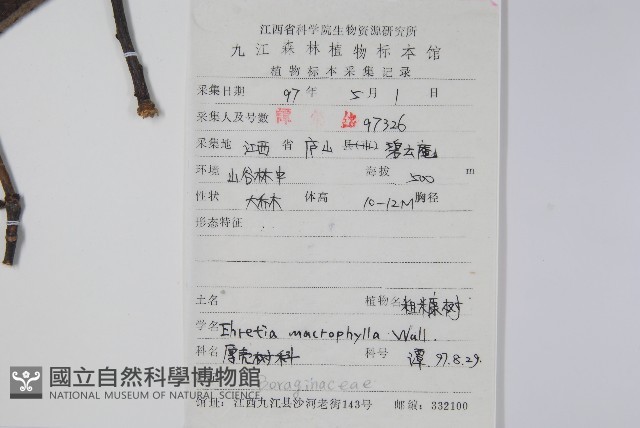 江西省科学院生物资源研究所
九江森林植物标本馆
植物标本采集记录
采集日期 97年 5月 1日
采集人及号数 97326
采集地 江西 省 庐山 县(市) 碧云庵
环境 山谷林中 海拔 500 m
性状 大乔木 体高 10-12M 胸径
形态特征
土名 植物名 粗糠树
学名 Ehretia macrophylla Wall.
科名 厚壳树科 科号 谭 97.8.29.
Boraginaceae
國立自然科學博物館
NATIONAL MUSEUM OF NATURAL SCIENCE
馆址：江西九江县沙河老街143号 邮编：332100